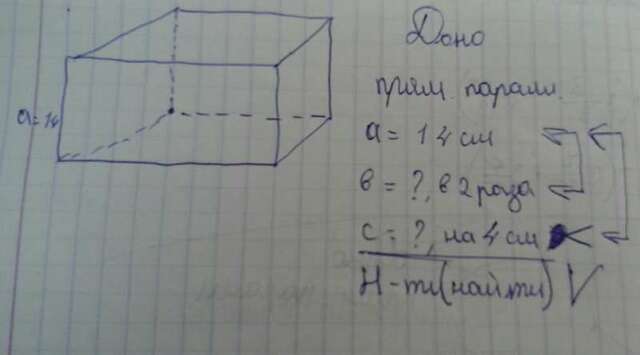 Дано
прям. паралл.
a = 14
a = 14 см
в = ?, в 2 раза
с = ?, на 4 см <
Н-ти (найти) V